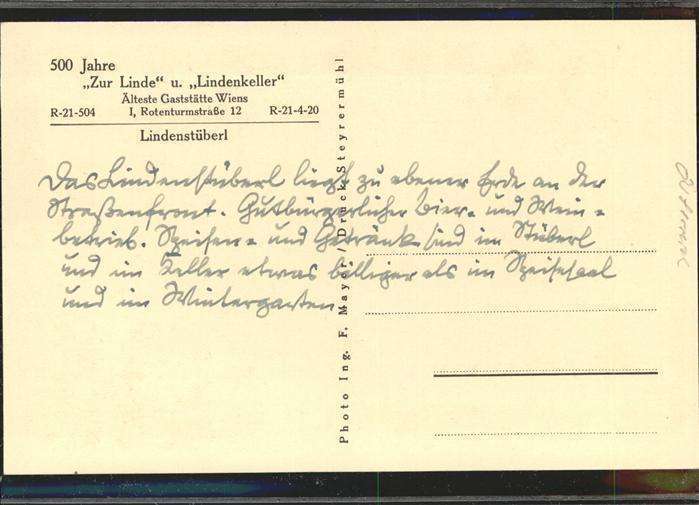 500 Jahre
„Zur Linde“ u. „Lindenkeller“
Älteste Gaststätte Wiens
R-21-504 I, Rotenturmstraße 12 R-21-4-20
Lindenstüberl
Das Lindenstüberl liegt zu ebener Erde an der
Straßenfront. Gutbürgerlicher Bier- und Wein-
betrieb. Speisen- und Getränke sind im Stüberl
und im Keller etwas billiger als im Speisesaal
und im Wintergarten
Photo Ing. F. Mayer / Druck Steyrermühl